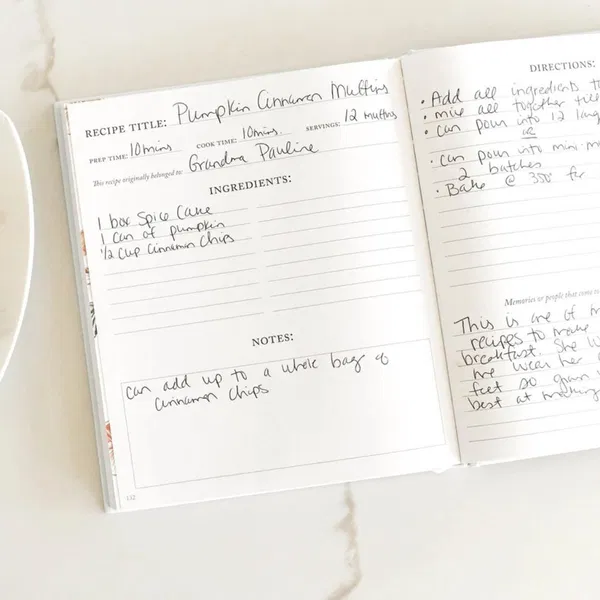 RECIPE TITLE: Pumpkin Cinnamon Muffins
PREP TIME: 10 mins COOK TIME: 10 mins. SERVINGS: 12 muffins
This recipe originally belonged to: Grandma Pauline
INGREDIENTS:
1 box Spice Cake
1 can of pumpkin
1/2 cup Cinnamon Chips
NOTES:
can add up to a whole bag of
Cinnamon Chips
132
DIRECTIONS:
• Add all ingredients
• mix all together
• can pour into 12
or
• can pour into mini
2 batches
• Bake @ 350° for
Memories or people that come
This is one of
recipes to make
breakfast. She
me wear her
feet so
best at making